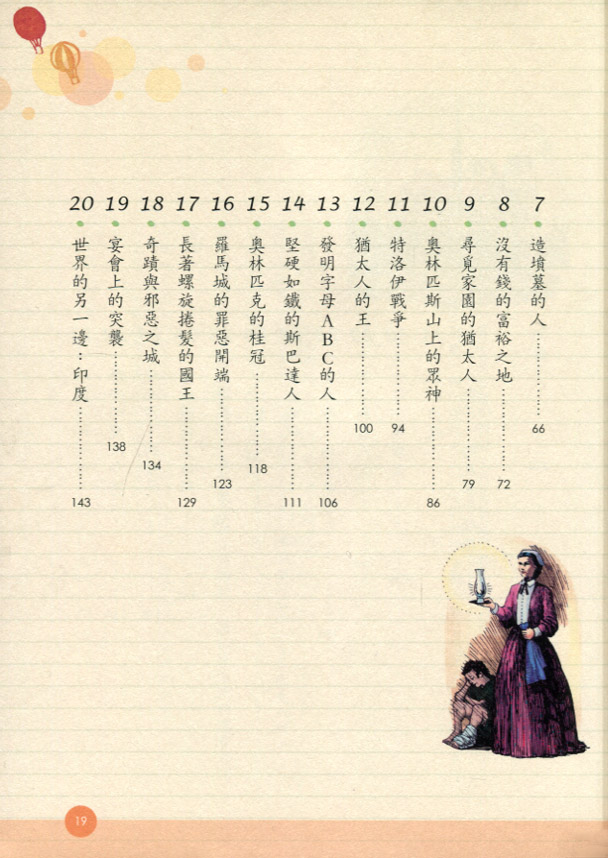 7 造墳墓的人 66
8 沒有錢的富裕之地 72
9 尋覓家園的猶太人 79
10 奧林匹斯山上的眾神 86
11 特洛伊戰爭 94
12 猶太人的王 100
13 發明字母ABC的人 106
14 堅硬如鐵的斯巴達人 111
15 奧林匹克的桂冠 118
16 羅馬城的罪惡開端 123
17 長著螺旋捲髮的國王 129
18 奇蹟與邪惡之城 134
19 宴會上的突襲 138
20 世界的另一邊：印度 143
19